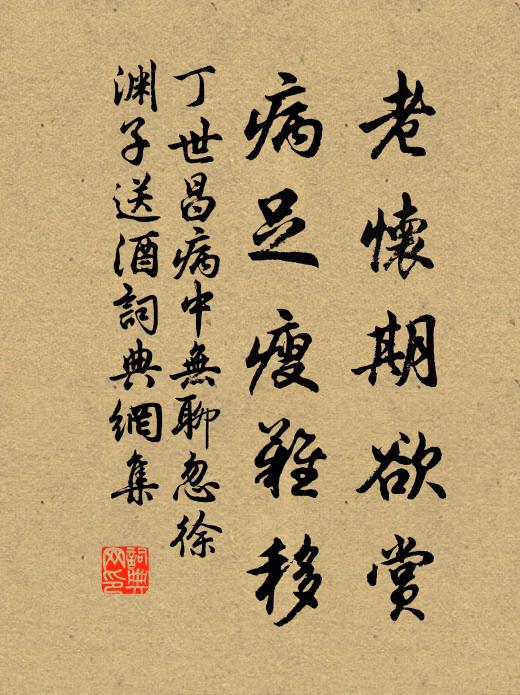 老懷期欲賞
病足瘦難移
丁世昌病中無聊忽徐
淵子送酒詞典網集
詞典網印